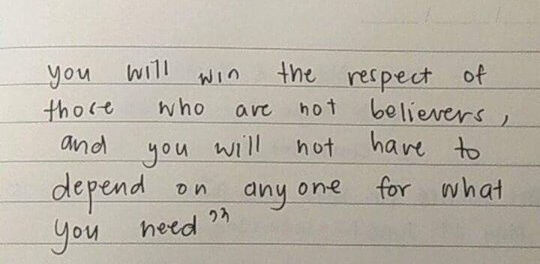 you will win the respect of
those who are not believers,
and you will not have to
depend on any one for what
you need"